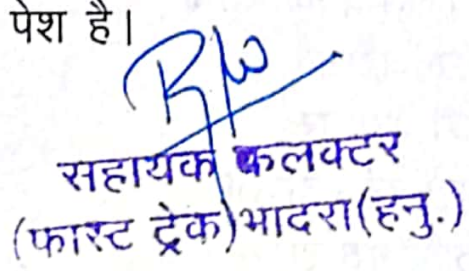 पेश है।
सहायक कलक्टर
(फास्ट ट्रेक)भादरा(हनु.)